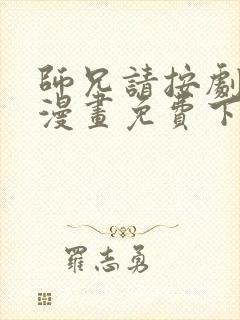 師兄請按劇
漫畫免費下
羅志勇